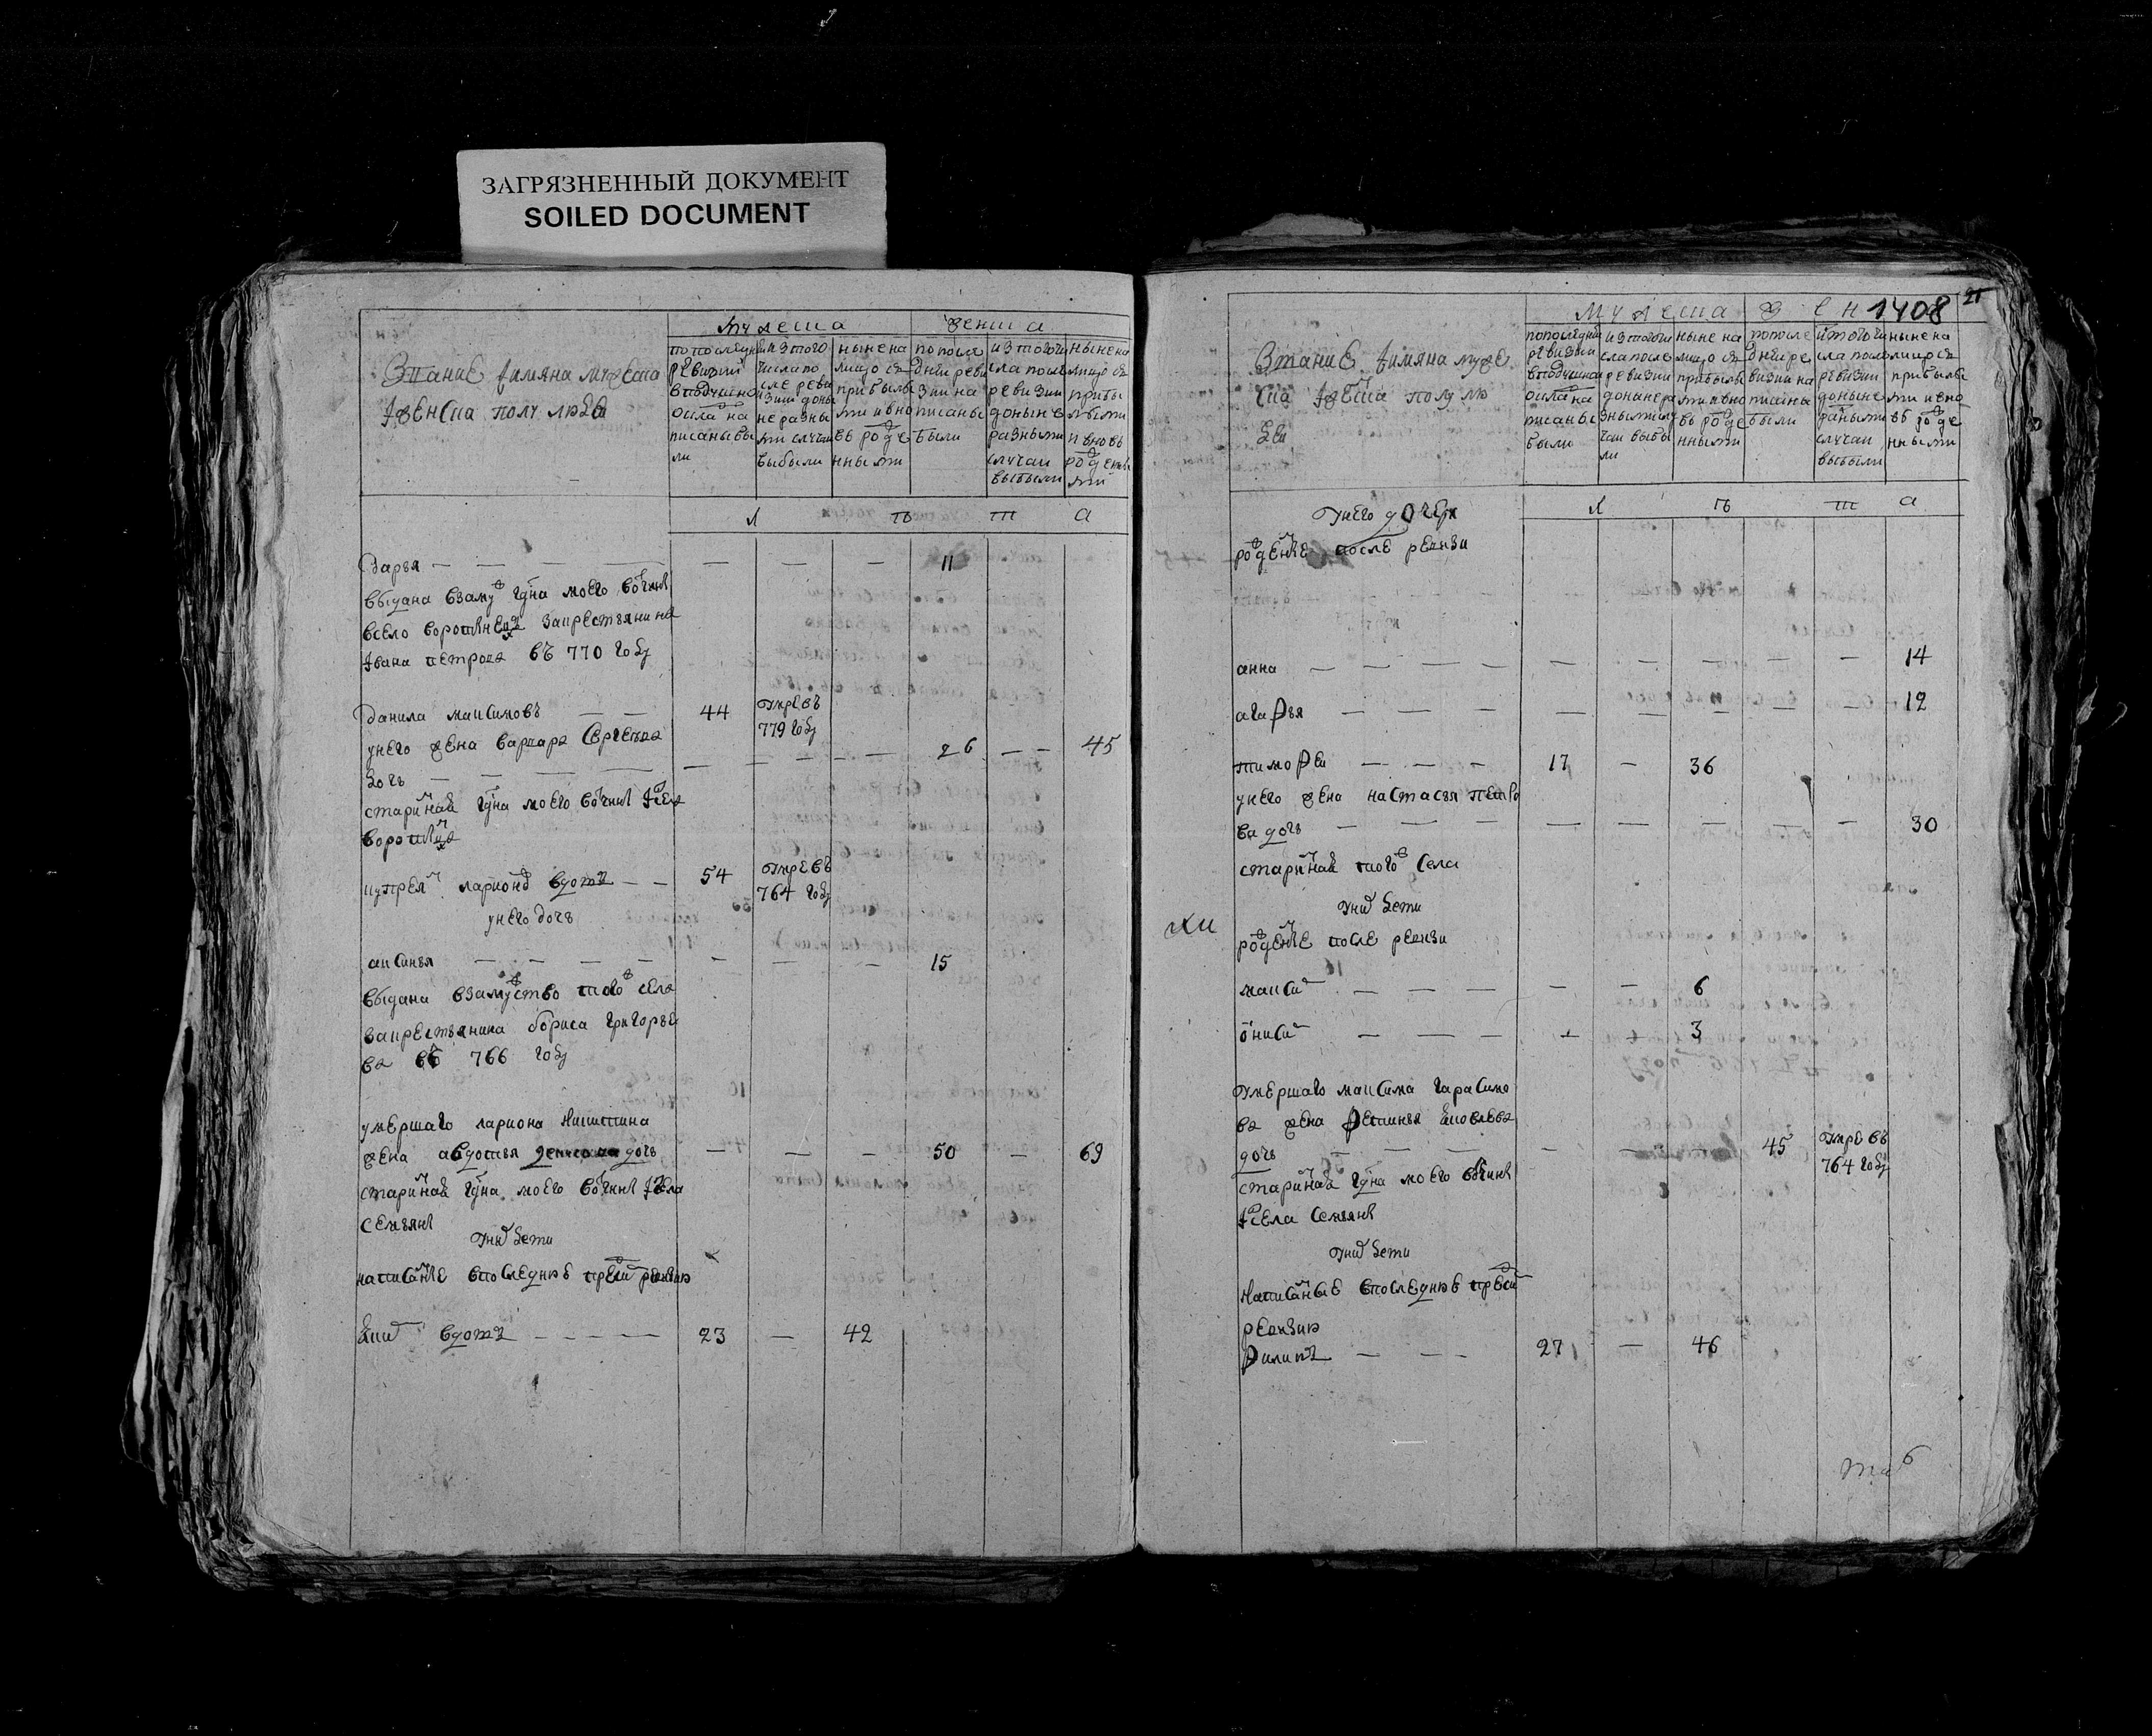 ЗАГРЯЗНЕННЫЙ ДОКУМЕНТ
SOILED DOCUMENT
Звание имяна мужеска
и женска полу людеи
мужеска
женска
по последней
ревизии
в подушно
оклад на
писаны бы
ли
ис того
числа по
сле реви
зии доны
не разны
ми случаи
выбыли
ныне на
лицо съ
прибылы
ми и вно
въ рожде
нными
по посл
дней реви
зии на
писаны
были
ис того чи
сла после
ревизии
доныне
разными
случаи
выбыли
ныне на
лицо съ
прибы
лыми
и вновь
рожденны
ми
л ѣ т а
Дарья 11
выдана взамуж гдна моего вотчины
в село
Ивана Петрова въ 770 году
Данила Максимовъ 44 умре въ
779 году
у него жена Варвара Сергеева 26 45
дочь
старинная гдна моего вотчины
Куприян Ларионов 54 умре въ
764 году
у него дочь
Аксинья 15
выдана взамужство того ж села
за крестьянина Бориса Григорье
ва въ 766 году
умершаго Лариона Никитина
жена Авдотья дочь 50 69
старинная гдна моего вотчины села
у них дети
написанные в последнюю пред сим ревизию
23 42
1408
21
Звание имяна муже
ска и женска полу лю
деи
мужеска
жен
по последней
ревизии
в подушной
оклад на
писаны
были
ис того чи
сла после
ревизии
доныне ра
зными слу
чаи выбы
ли
ныне на
лицо съ
прибылы
ми и вно
въ рожде
нными
по после
дней ре
визии на
писаны
были
ис того чи
сла после
ревизии
доныне
разными
случаи
выбыли
ныне на
лицо съ
прибылы
ми и вно
въ рожде
нными
л ѣ т а
у него дочери
рожденные после ревизи
Анна 14
Агафья 12
Тимофеи 17 36
у него жена Настасья Петро
ва дочь 30
старинная того ж села
у них дети
рожденные после ревизи
Максим 6
Онисим 3
умершаго Максима Гарасимо
ва жена Фетинья Яковлева
дочь 45 умре въ
764 году
старинная гдна моего вотчины
села
у них дети
написанные в последнюю пред сим
ревизию
Филипъ 27 46